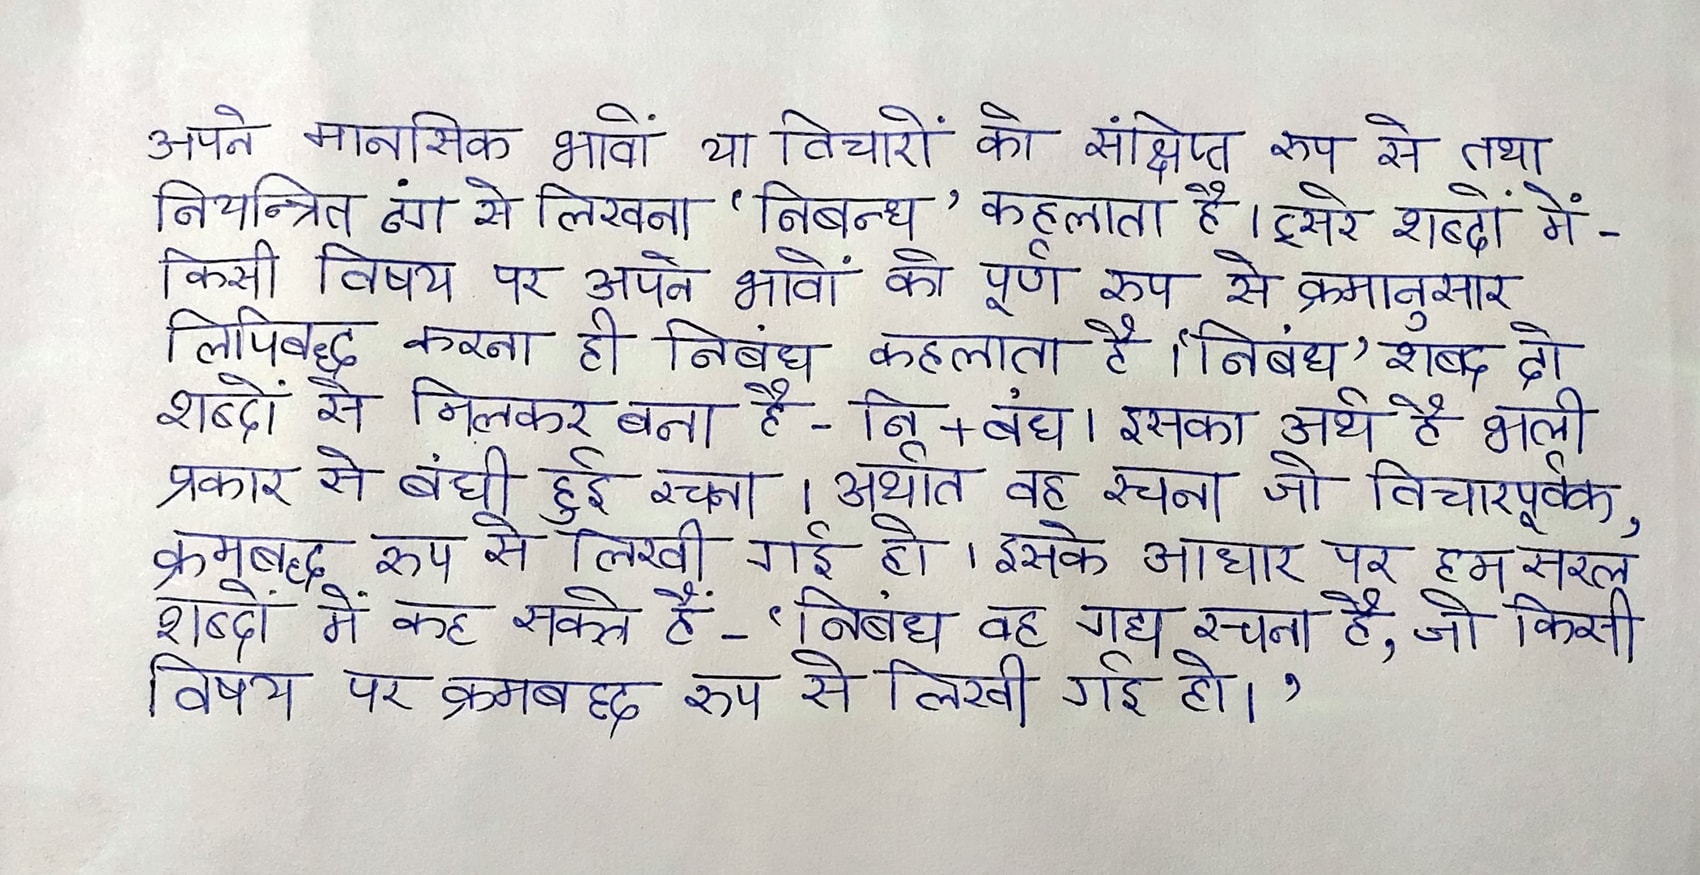 अपने मानसिक भावों या विचारों को संक्षिप्त रुप से तथा
नियन्त्रित ढंग से लिखना ‘निबन्ध’ कहलाता है। दूसरे शब्दों में-
किसी विषय पर अपने भावों को पूर्ण रुप से क्रमानुसार
लिपिबद्ध करना ही निबंध कहलाता है। ‘निबंध’ शब्द दो
शब्दों से मिलकर बना है- नि + बंध। इसका अर्थ है भली
प्रकार से बंधी हुई रचना। अर्थात वह रचना जो विचारपूर्वक,
क्रमबद्ध रुप से लिखी गई हो। इसके आधार पर हम सरल
शब्दों में कह सकते हैं- ‘निबंध वह गद्य रचना है, जो किसी
विषय पर क्रमबद्ध रुप से लिखी गई हो।’